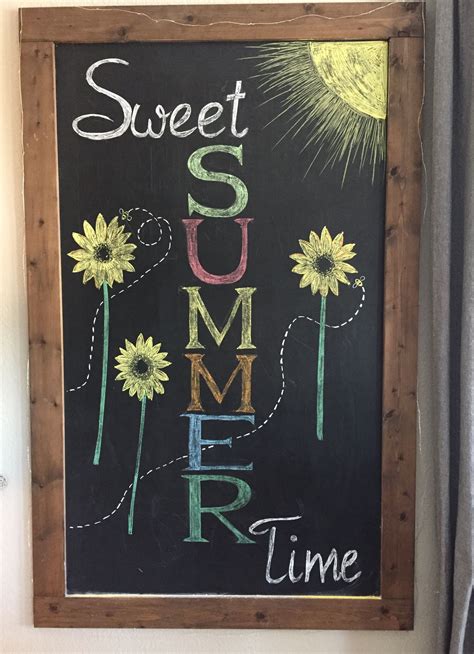 Sweet
SUMMER
Time